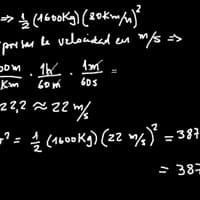 ⇒ 1/2 (1600Kg)(80Km/h)²
pasar la velocidad en m/s ⇒
00m/Km · 1h/60m · 1m/60s =
22,2 ≈ 22 m/s
² = 1/2 (1600Kg)(22 m/s)² = 387
= 387